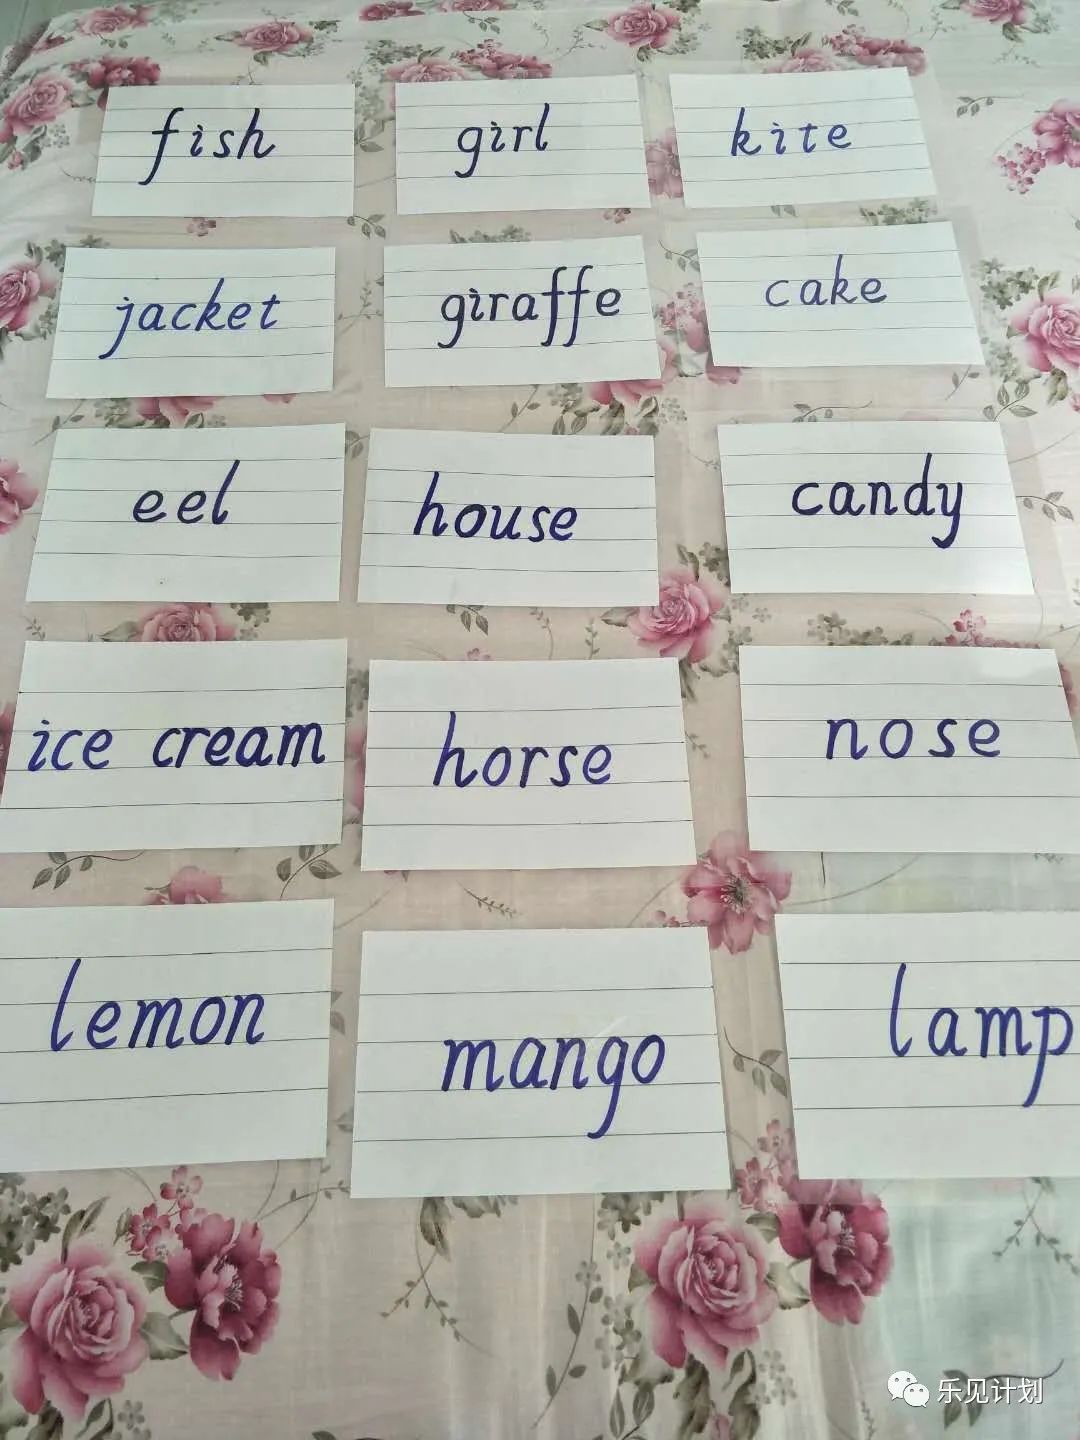 fish
girl
kite
jacket
giraffe
cake
eel
house
candy
ice cream
horse
nose
lemon
mango
lamp
乐见计划